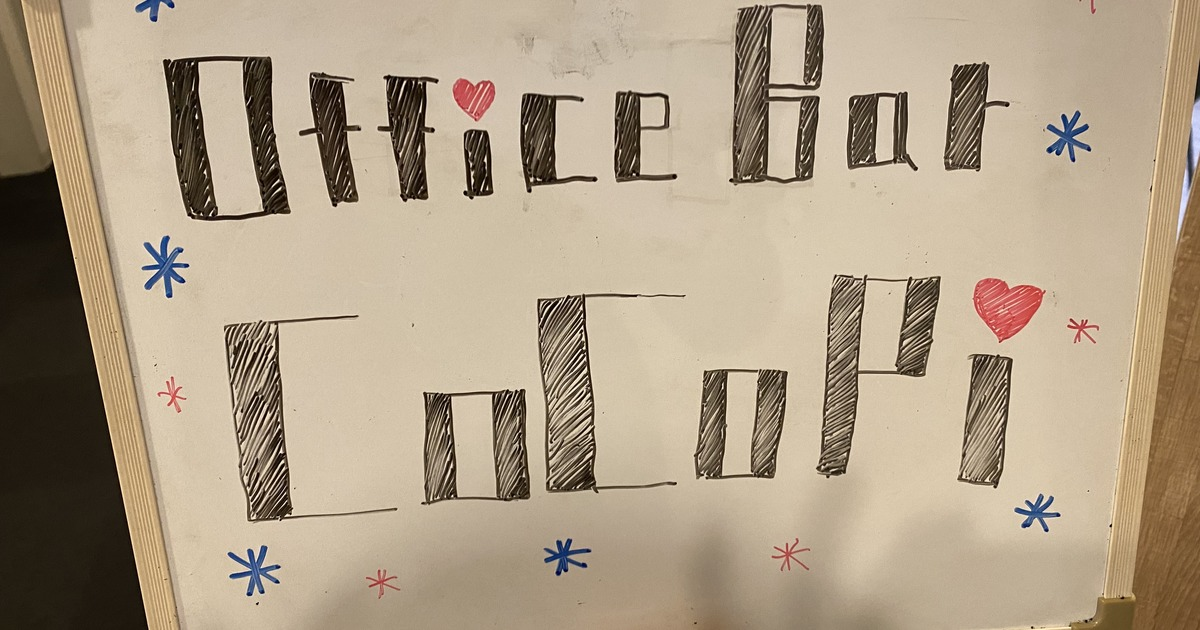 Office Bar
CoCoPi